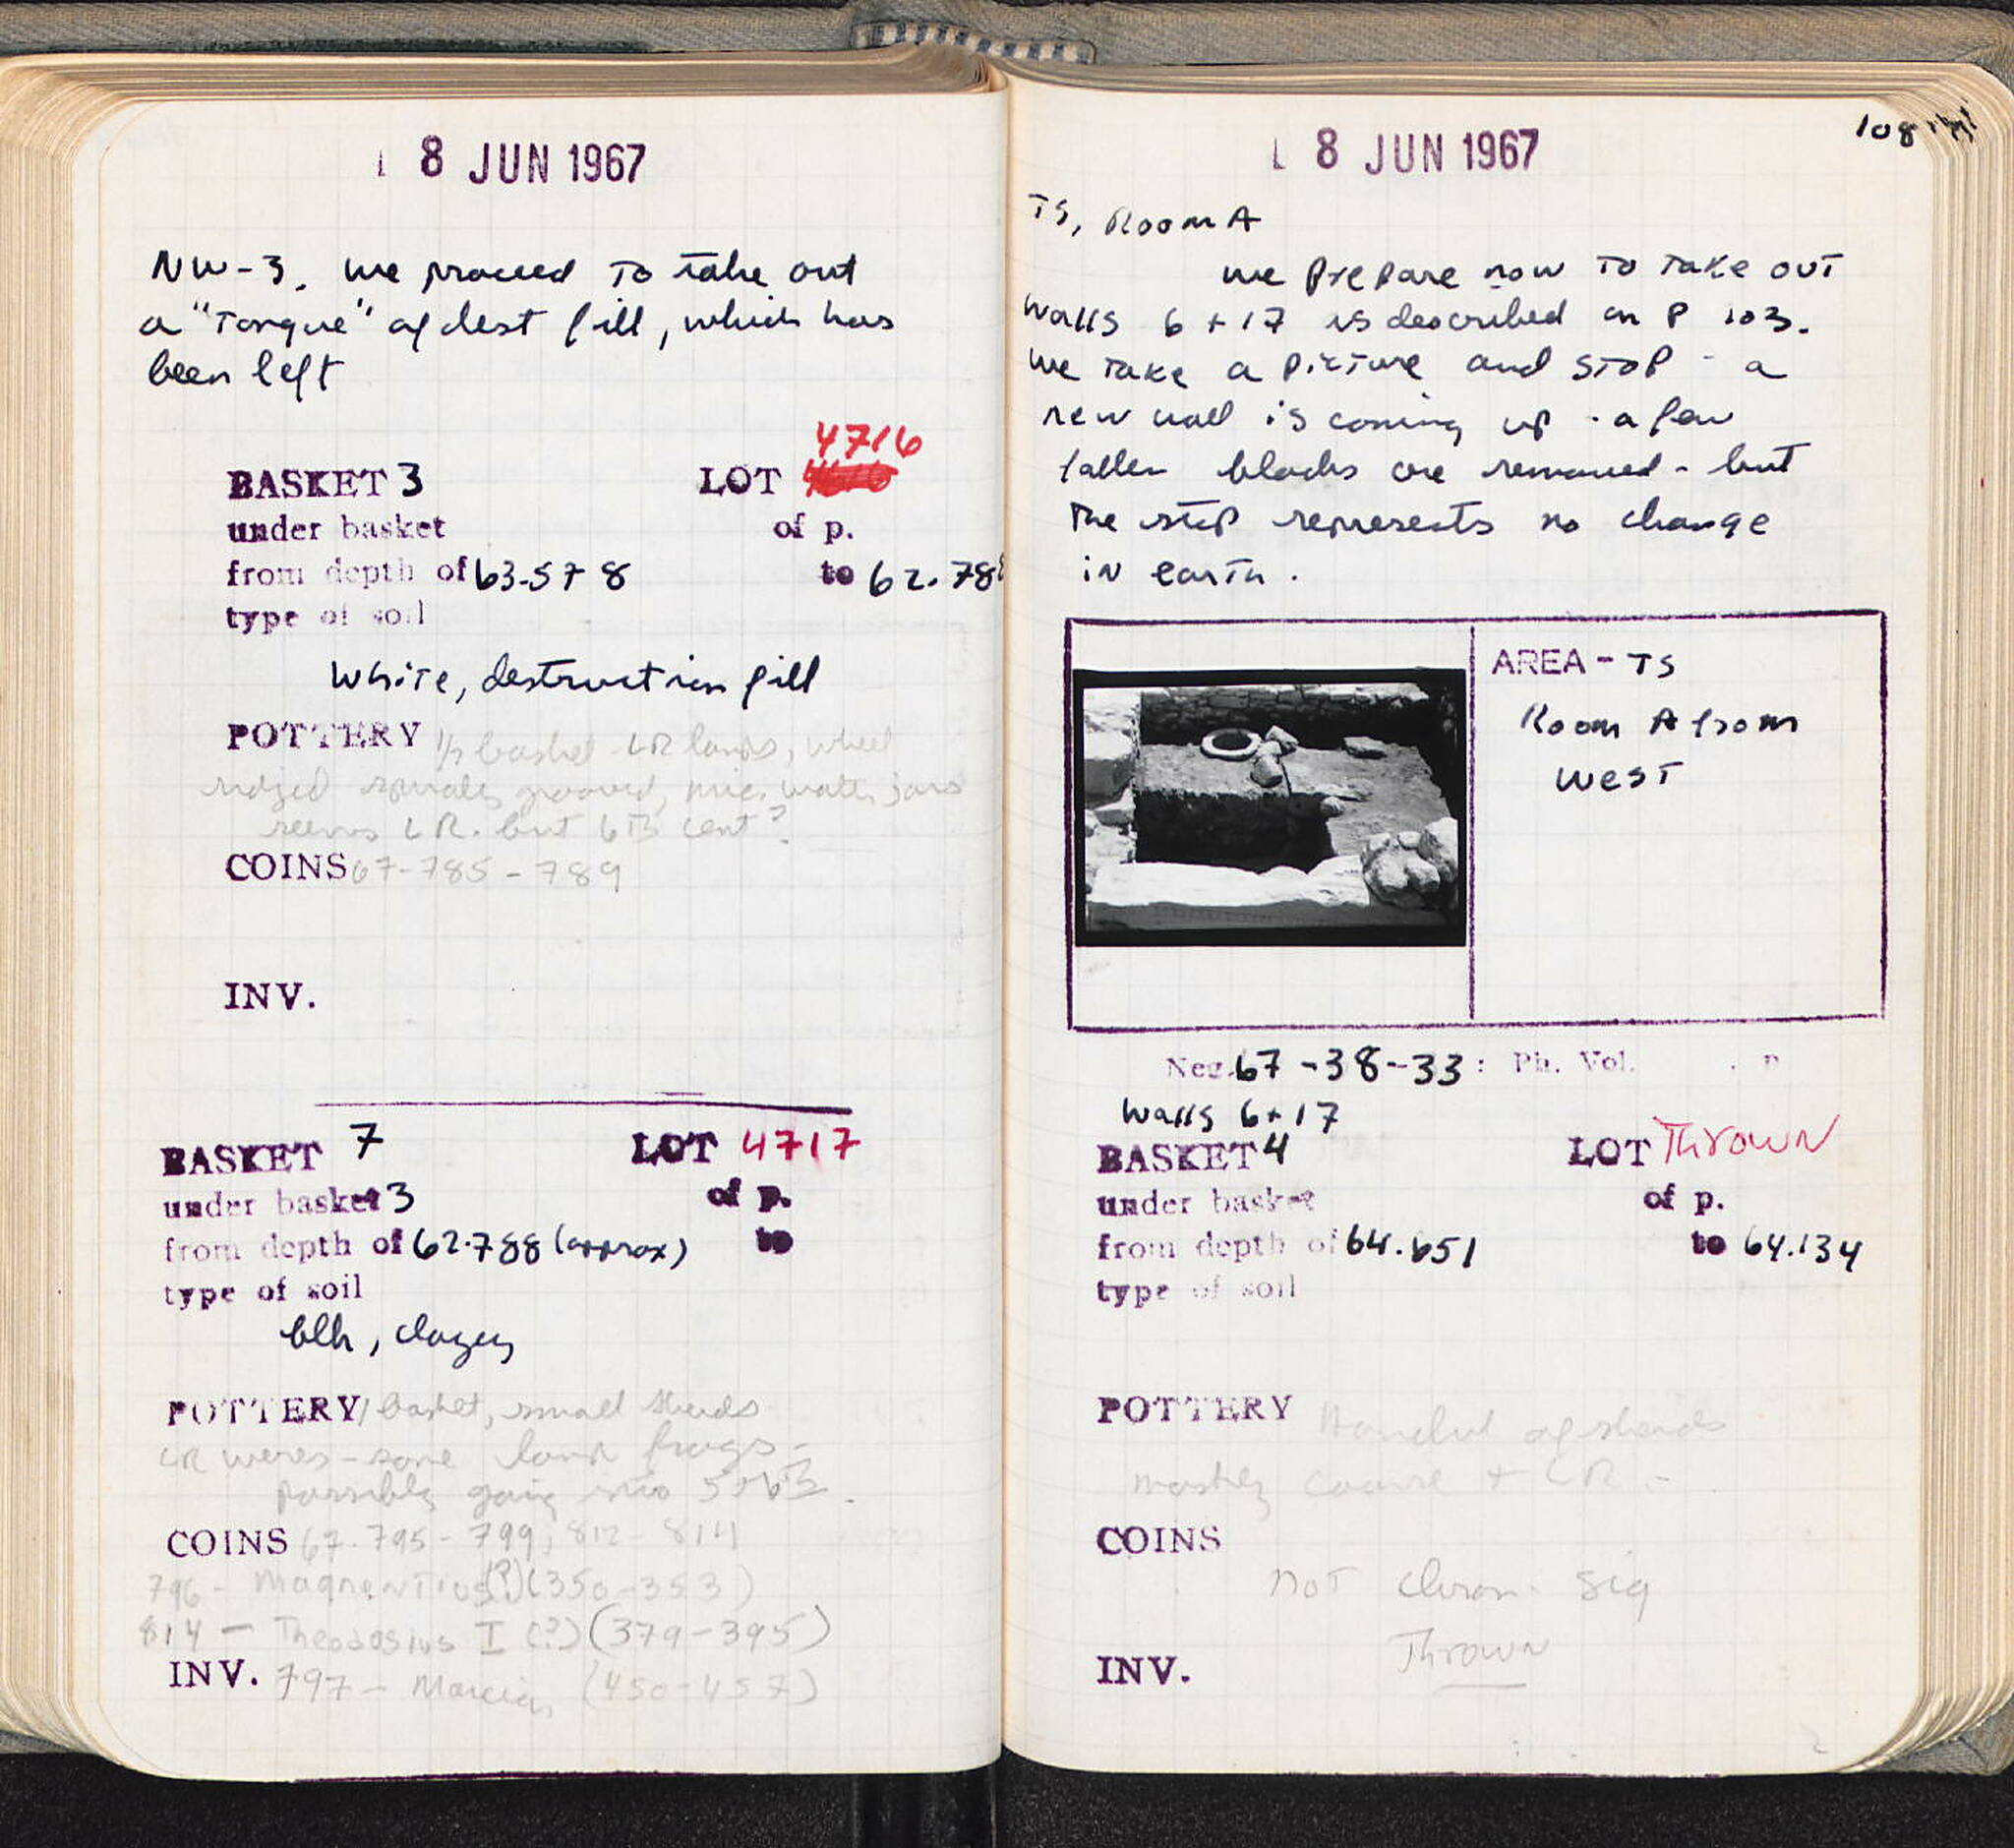 8 JUN 1967
NW-3. We proceed to take out
a "Tongue" of dest fill, which has
been left
4716
BASKET 3 LOT
under basket of p.
from depth of 63.578 to 62.788
type of soil
White, destruction fill
POTTERY 1/2 basket LR lamps, wheel
ridged spirally grooved, mic. water jars
seems LR. but 6th cent?
COINS 67-785-789
INV.
BASKET 7 LOT 4717
under basket 3 of p.
from depth of 62.788 (approx) to
type of soil
blk, clayey
POTTERY 1 basket, small sherds
LR wares - some lamp frags -
possibly going into 5-6th.
COINS 67.795-799, 812-814
796 - Magnentius(?) (350-353)
814 - Theodosius I (?) (379-395)
INV. 797 - Marcian (450-457)
108
8 JUN 1967
TS, Room A
We prepare now to take out
walls 6 + 17 as described on p 103.
We take a picture and stop - a
new wall is coming up - a few
fallen blocks are removed - but
the stop represents no change
in earth.
AREA - TS
Room A from
West
Neg. 67-38-33: Ph. Vol. p
Walls 6 + 17
BASKET 4 LOT Thrown
under basket of p.
from depth of 64.651 to 64.134
type of soil
POTTERY Handful of sherds
mostly coarse + LR -
COINS
not chron. sig
Thrown
INV.